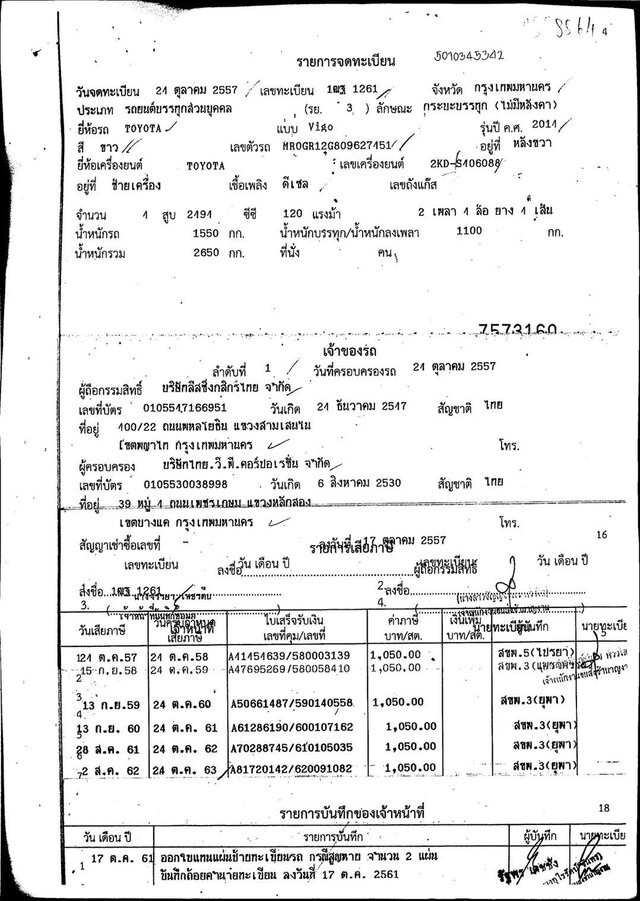 รายการจดทะเบียน 5010345342
วันจดทะเบียน 24 ตุลาคม 2557 เลขทะเบียน 1261 จังหวัด กรุงเทพมหานคร
ประเภท รถยนต์บรรทุกส่วนบุคคล (รย. 3 ) ลักษณะ กระบะบรรทุก (ไม่มีหลังคา)
ยี่ห้อรถ TOYOTA แบบ Vigo รุ่นปี ค.ศ. 2014
สี ขาว เลขตัวรถ MR0GR12G809627451 อยู่ที่ หลังขวา
ยี่ห้อเครื่องยนต์ TOYOTA เลขเครื่องยนต์ 2KD-S406088
อยู่ที่ ซ้ายเครื่อง เชื้อเพลิง ดีเซล เลขถังแก๊ส
จำนวน 4 สูบ 2494 ซีซี 120 แรงม้า 2 เพลา 4 ล้อ ยาง 4 เส้น
น้ำหนักรถ 1550 กก. น้ำหนักบรรทุก/น้ำหนักลงเพลา 1100 กก.
น้ำหนักรวม 2650 กก. ที่นั่ง คน
7573160
เจ้าของรถ
ลำดับที่ 1 วันที่ครอบครองรถ 24 ตุลาคม 2557
ผู้ถือกรรมสิทธิ์ บริษัทลีสซิ่งกสิกรไทย จำกัด
เลขที่บัตร 0105547166951 วันเกิด 24 ธันวาคม 2547 สัญชาติ ไทย
ที่อยู่ 400/22 ถนนพหลโยธิน แขวงสามเสนใน
เขตพญาไท กรุงเทพมหานคร โทร.
ผู้ครอบครอง บริษัทไทย.วี.พี.คอร์ปอเรชั่น จำกัด
เลขที่บัตร 0105530038998 วันเกิด 6 สิงหาคม 2530 สัญชาติ ไทย
ที่อยู่ 39 หมู่ 4 ถนนเพชรเกษม แขวงหลักสอง
เขตบางแค กรุงเทพมหานคร โทร. 16
สัญญาเช่าซื้อเลขที่ - ลงวันที่ 17 ตุลาคม 2557
รายการเสียภาษี
เลขทะเบียน วัน เดือน ปี เลขทะเบียน วัน เดือน ปี
ลงชื่อ ผู้ถือกรรมสิทธิ์
1. 1261 2.
3. 4.
วันเสียภาษี วันครบกำหนดเสียภาษี ใบเสร็จรับเงิน เลขที่คุม/เลขที่ ค่าภาษี บาท/สต. เงินเพิ่ม บาท/สต. ผู้บันทึก นายทะเบียน
24 ต.ค.57 24 ต.ค.58 A41454639/580003139 1,050.00 สขพ.5(ไปรยา)
15 ก.ย.58 24 ต.ค.59 A47695269/580058410 1,050.00
13 ก.ย.59 24 ต.ค.60 A50661487/590140558 1,050.00 สขพ.3(ยุพา)
13 ก.ย. 60 24 ต.ค. 61 A61286190/600107162 1,050.00 สขพ.3(ยุพา)
28 ส.ค. 61 24 ต.ค. 62 A70288745/610105035 1,050.00 สขพ.3(ยุพา)
2 ส.ค. 62 24 ต.ค. 63 A81720142/620091082 1,050.00 สขพ.3(ยุพา)
รายการบันทึกของเจ้าหน้าที่ 18
วัน เดือน ปี รายการบันทึก ผู้บันทึก นายทะเบีย
17 ต.ค. 61 ออกใบแทนแผ่นป้ายทะเบียนรถ กรณีสูญหาย จำนวน 2 แผ่น
บันทึกถ้อยคำนายทะเบียน ลงวันที่ 17 ต.ค. 2561